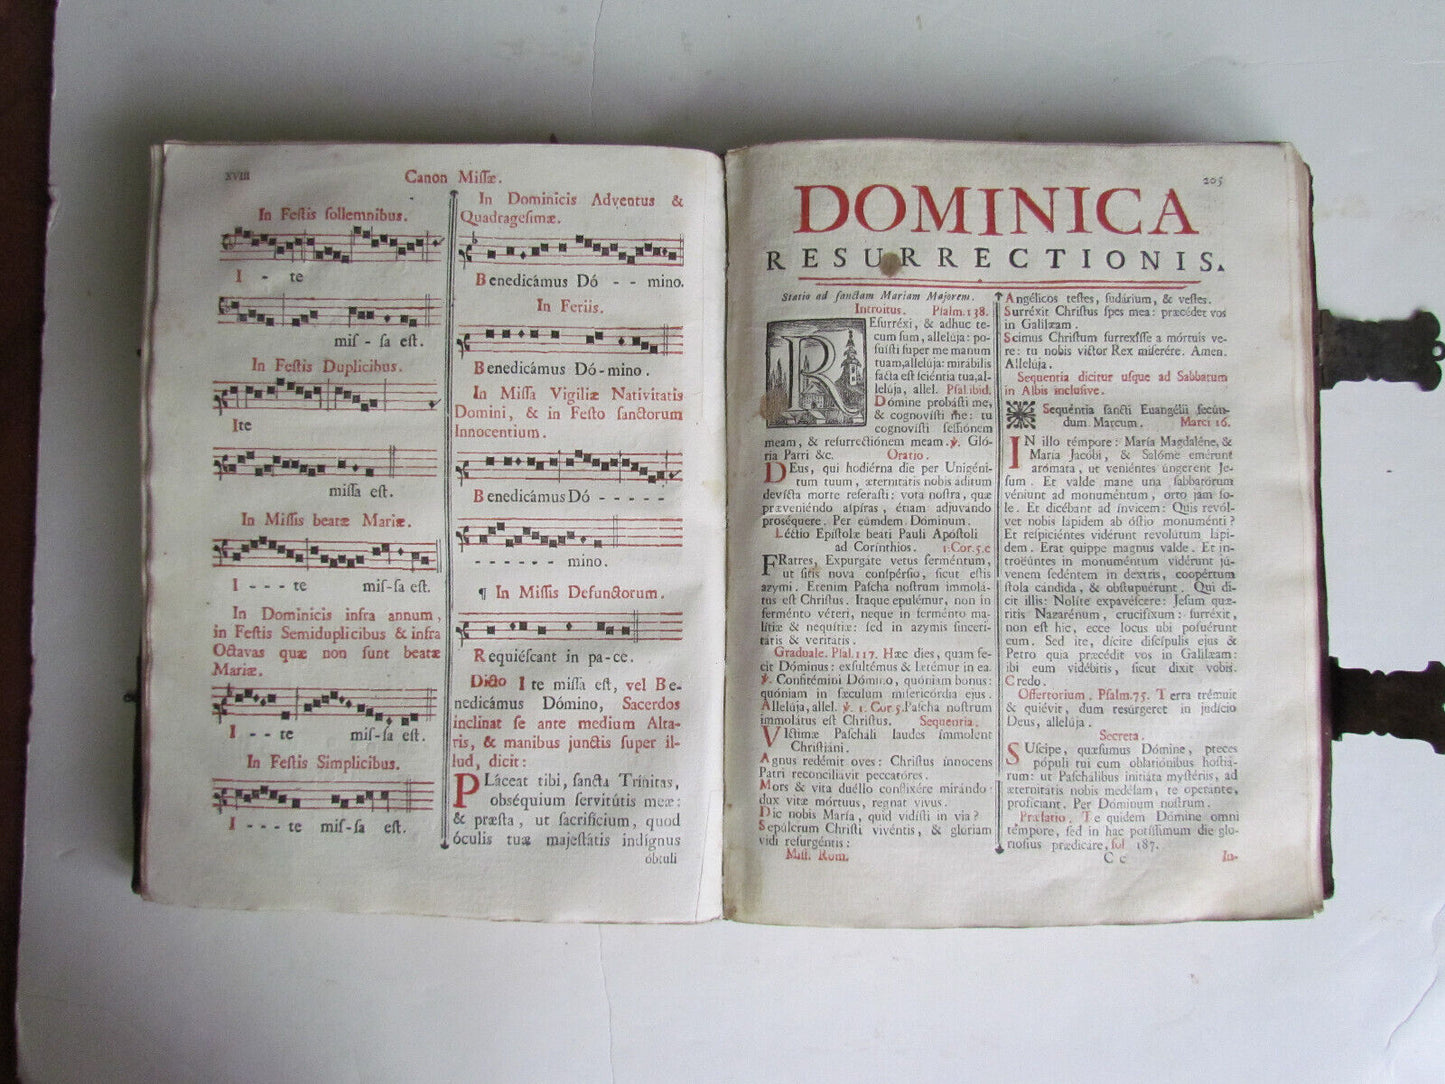 XVIII
Canon Miſſæ.
In Feſtis ſollemnibus.
I - te
miſ - ſa eſt.
In Feſtis Duplicibus.
Ite
miſſa eſt.
In Miſſis beatæ Mariæ.
I - - - te miſ-ſa eſt.
In Dominicis infra annum,
in Feſtis Semiduplicibus & infra
Octavas quæ non ſunt beatæ
Mariæ.
I - - te miſ-ſa eſt.
In Feſtis Simplicibus.
I - - - te miſ-ſa eſt.
In Dominicis Adventus &
Quadrageſimæ.
Benedicámus Dó - - mino.
In Feriis.
Benedicámus Dó-mino.
In Miſſa Vigiliæ Nativitatis
Domini, & in Feſto ſanctorum
Innocentium.
Benedicámus Dó - - - - -
- - - - - - mino.
¶ In Miſſis Defunctorum.
Requiéſcant in pa-ce.
Dicto Ite miſſa eſt, vel Be-
nedicámus Dómino, Sacerdos
inclinat ſe ante medium Alta-
ris, & manibus junctis ſuper il-
lud, dicit:
PLáceat tibi, ſancta Trínitas,
obſéquium ſervitútis meæ:
& præſta, ut ſacrificium, quod
óculis tuæ majeſtátis indígnus
óbtuli
205
DOMINICA
RESURRECTIONIS.
Statio ad ſanctam Mariam Majorem.
Introitus. Pſalm. 138.
REſurréxi, & adhuc te-
cum ſum, allelúja: po-
ſuíſti ſuper me manum
tuam, allelúja: mirábilis
facta eſt ſciéntia tua, al-
lelúja, allel. Pſal. ibid.
Dómine probáſti me,
& cognovíſti me: tu
cognovíſti ſeſſiónem
meam, & reſurrectiónem meam. ℣. Gló-
ria Patri &c. Oratio.
DEus, qui hodiérna die per Unigéni-
tum tuum, æternitátis nobis áditum
devícta morte reſeraſti: vota noſtra, quæ
præveniéndo aſpíras, étiam adjuvando
proſéquere. Per eúmdem Dóminum.
Léctio Epíſtolæ beati Pauli Apoſtoli
ad Corínthios. 1. Cor. 5. c
FRatres, Expurgáte vetus ferméntum,
ut ſitis nova conſpérſio, ſicut eſtis
azymi. Etenim Paſcha noſtrum immolá-
tus eſt Chriſtus. Itaque epulémur, non in
ferménto véteri, neque in ferménto ma-
lítiæ & nequítiæ: ſed in azymis ſinceri-
tátis & veritátis.
Graduale. Pſal. 117. Hæc dies, quam fe-
cit Dóminus: exſultémus & lætémur in ea.
℣. Confitémini Dómino, quóniam bonus:
quóniam in ſæculum miſericórdia ejus.
Allelúja, allel. ℣. 1. Cor. 5. Paſcha noſtrum
immolátus eſt Chriſtus. Sequentia.
VIctimæ Paſchali laudes ímmolent
Chriſtiáni.
Agnus redémit oves: Chriſtus ínnocens
Patri reconciliávit peccatóres.
Mors & vita duéllo conflixére mirándo:
dux vitæ mórtuus, regnat vivus.
Dic nobis María, quid vidíſti in via?
Sepúlcrum Chriſti vivéntis, & glóriam
vidi reſurgéntis:
Miſſ. Rom.
Angélicos teſtes, ſudárium, & veſtes.
Surréxit Chriſtus ſpes mea: præcédet vos
in Galilæam.
Scimus Chriſtum ſurrexíſſe a mórtuis ve-
re: tu nobis victor Rex miſerére. Amen.
Allelúja.
Sequentia dicitur uſque ad Sabbatum
in Albis incluſive.
Sequéntia ſancti Euangélii ſecún-
dum Marcum. Marci 16.
IN illo témpore: María Magdaléne, &
María Jacóbi, & Salóme emérunt
arómata, ut veniéntes úngerent Je-
ſum. Et valde mane una ſabbatórum
véniunt ad monuméntum, orto jam ſo-
le. Et dicébant ad ínvicem: Quis revól-
vet nobis lápidem ab óſtio monuménti?
Et reſpiciéntes vidérunt revolútum lápi-
dem. Erat quippe magnus valde. Et in-
troëúntes in monuméntum vidérunt jú-
venem ſedéntem in dextris, coopértum
ſtola cándida, & obſtupuérunt. Qui di-
cit illis: Nolíte expavéſcere: Jeſum quæ-
rítis Nazarénum, crucifíxum: ſurréxit,
non eſt hic, ecce locus ubi poſuérunt
eum. Sed ite, dícite diſcípulis ejus &
Petro quia præcédit vos in Galilæam:
ibi eum vidébitis, ſicut dixit vobis.
Credo.
Offertorium. Pſalm. 75. Terra trémuit
& quiévit, dum reſúrgeret in judício
Deus, allelúja.
Secreta.
SUſcipe, quæſumus Dómine, preces
pópuli tui cum oblatiónibus hoſtiá-
rum: ut Paſchálibus initiáta myſtériis, ad
æternitátis nobis medélam, te operánte,
profíciant. Per Dóminum noſtrum.
Præfatio. Te quidem Dómine omni
témpore, ſed in hac potíſſimum die glo-
rióſius prædicáre, fol 187.
C c
In-